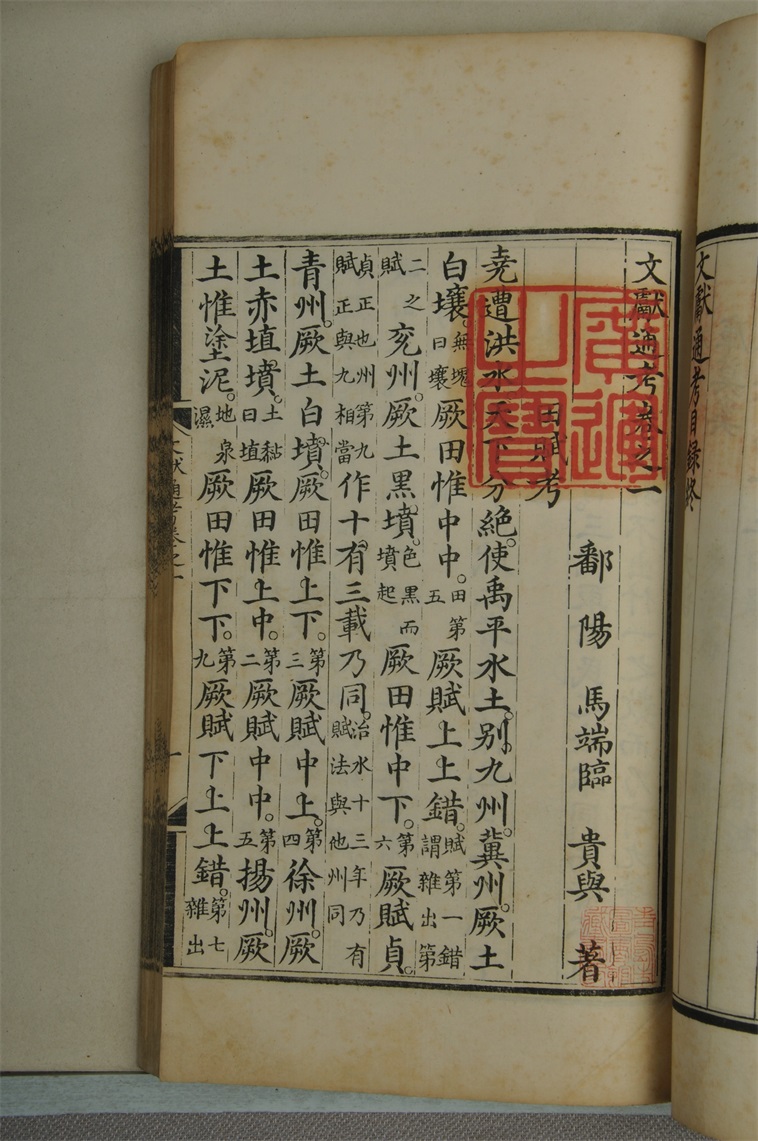 文獻通考目録終
文獻通考卷之一
鄱陽馬端臨貴與著
田賦考
堯遭洪水天下分絶使禹平水土别九州冀州厥土
白壤無塊曰壤厥田惟中中田第五厥賦上上錯賦第一錯謂雜出第
二之賦兖州厥土黑墳色黒而墳起厥田惟中下第六厥賦貞
貞正也州第九賦正與九相當作十有三載乃同治水十三年乃有賦法與他州同
青州厥土白墳厥田惟上下第三厥賦中上第四徐州厥
土赤埴墳土黏曰埴厥田惟上中第二厥賦中中第五揚州厥
土惟塗泥地泉濕厥田惟下下第九厥賦下上上錯第七雜出
文獻通考卷之一
一
廣運之寶